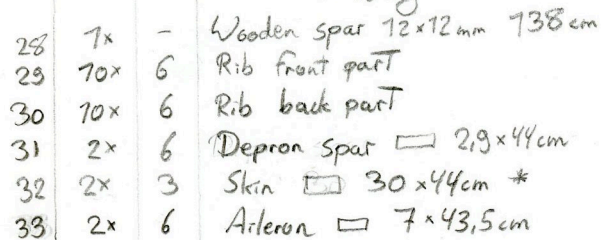 28 1x – Wooden spar 12x12mm 138cm
29 10x 6 Rib front part
30 10x 6 Rib back part
31 2x 6 Depron spar ▭ 2,9x44cm
32 2x 3 Skin ▭ 30x44cm *
33 2x 6 Aileron ▭ 7x43,5cm